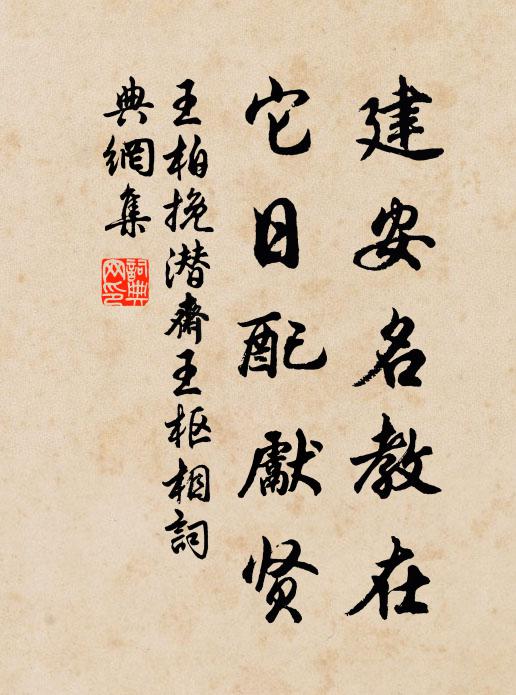 建安名教在
它日配獻贤
王柏挽潜齋王枢相詞
典網集
詞典网印